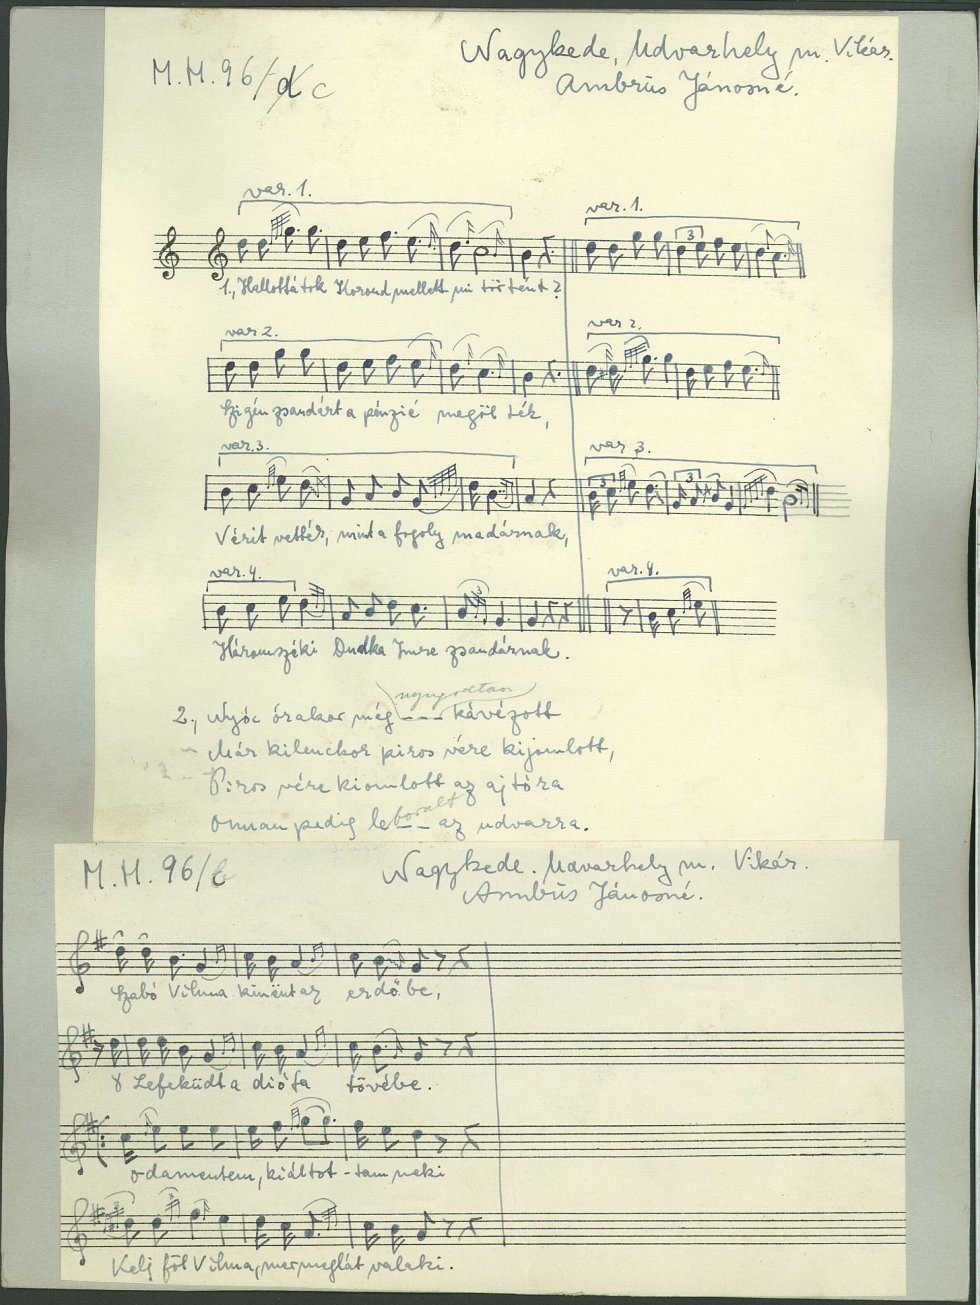 Nagykede, Udvarhely m. Vikár.
M.M. 96/d c
Ambrus Jánosné.
var. 1.
var. 1.
1., Hallottátok Korond mellett mi történt?
var 2.
var 2.
Szigén zsandért a pénzié megöl ték,
var. 3.
var 3.
Vérit vették, mint a fogoly madárnak,
var. 4.
var. 4.
Háromszéki Dudka Imre zsandárnak.
nyugodtan
2., Nyóc órakor még --- kávézott
Már kilenckor piros vére kijomlott,
Piros vére kiomlott az ajtóra
borult
Onnan pedig le -- az udvarra.
M.M. 96/b
Nagykede. Udvarhely m. Vikár.
Ambrus Jánosné.
Szabó Vilma kimënt az erdőbe,
Lefeküdt a diófa tövébe.
Odamentem, kiáltot-tam neki
Kelj föl Vilma, mer meglát valaki.